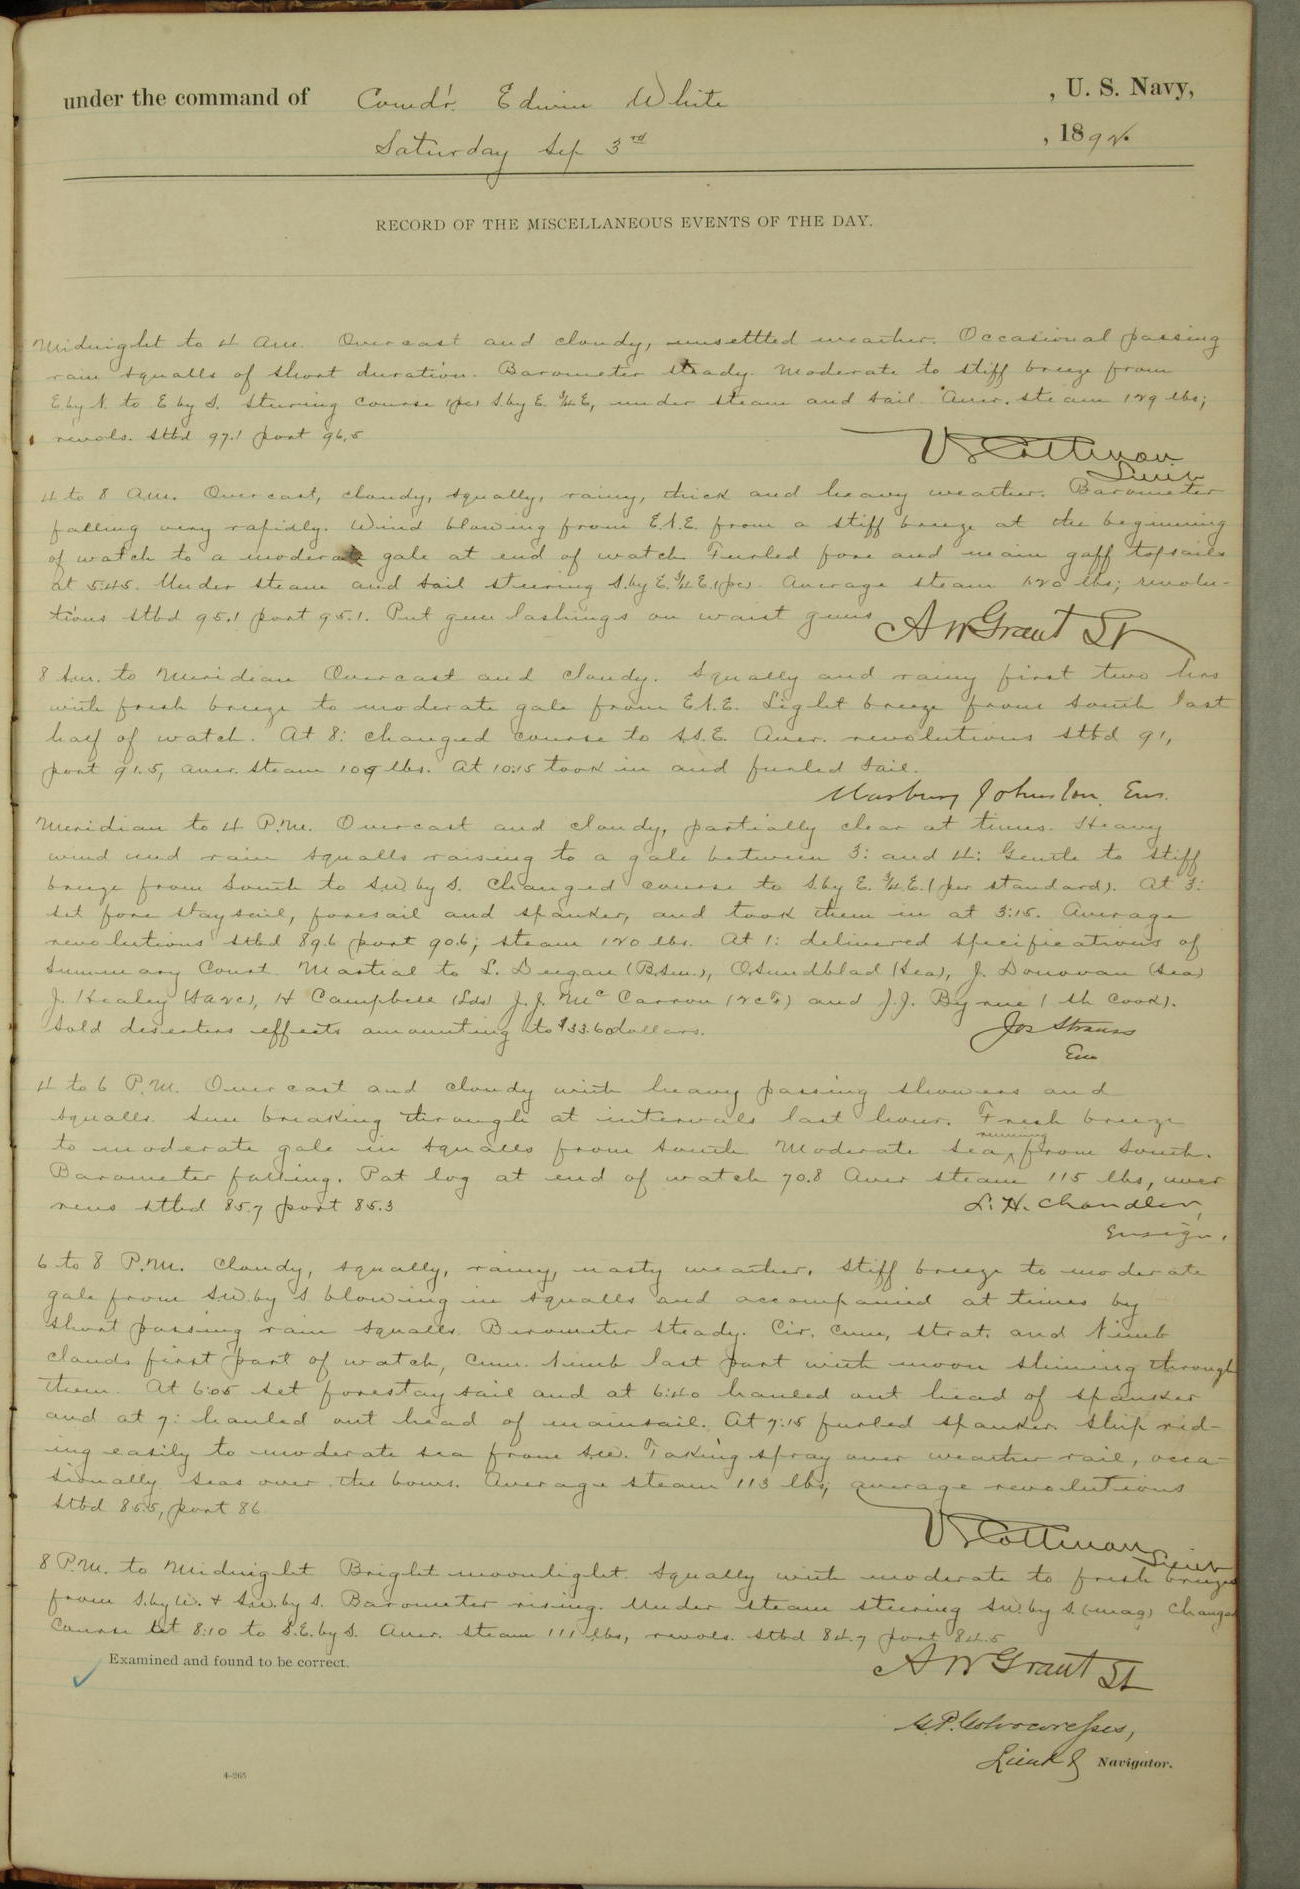 under the command of Comd'r. Edwin White , U. S. Navy,
Saturday Sep 3rd , 1892.
RECORD OF THE MISCELLANEOUS EVENTS OF THE DAY.
Midnight to 4 Am. Overcast and cloudy, unsettled weather. Occasional passing
rain squalls of short duration. Barometer steady. Moderate to stiff breeze from
E by N. to E by S. Steering course (pc) S. by E. ¾ E, under steam and sail. Aver. steam 129 lbs;
revols. stbd 97.1 port 96.5
Lieut
4 to 8 Am. Overcast, cloudy, squally, rainy, thick and heavy weather. Barometer
falling very rapidly. Wind blowing from E.N.E. from a stiff breeze at the beginning
of watch to a moderate gale at end of watch Furled fore and main gaff topsails
at 5.45. Under steam and sail steering S. by E. ¾ E. (pc). Average steam 120 lbs; revolu-
tions stbd 95.1 port 95.1. Put gun lashings on waist guns
A W Grant Lt
8 Am. to Meridian Overcast and cloudy. Squally and rainy first two hrs
with fresh breeze to moderate gale from E.N.E. Light breeze from south last
half of watch. At 8: changed course to S.S.E. Aver. revolutions stbd 91,
port 91.5, aver. steam 109 lbs. At 10:15 took in and furled sail.
Marbury Johnston, Ens.
Meridian to 4 P.M. Overcast and cloudy, partially clear at times. Heavy
wind and rain squalls raising to a gale between 3: and 4: Gentle to stiff
breeze from South to SW by S. Changed course to S. by E. ¾ E. (per standard). At 3:
set fore staysail, foresail and spanker, and took them in at 3:15. Average
revolutions stbd 89.6 port 90.6; steam 120 lbs. At 1: delivered specifications of
Summary Court Martial to L. Deegan (B.Sm.), O. Sundblad (Sea), J. Donovan (Sea)
J. Healey (Sa2c), H Campbell (Lds) J. J. McCarron (2cF) and J. J. Byrne (Sh Cook).
Sold deserters effects amounting to $33.60 dollars.
Jos Strauss
Ens
4 to 6 P.M. Overcast and cloudy with heavy passing showers and
squalls. Sun breaking through at intervals last hour. Fresh breeze
to moderate gale in squalls from south Moderate sea running from South.
Barometer falling. Pat log at end of watch 70.8 Aver steam 115 lbs, aver
revs stbd 85.7 port 85.3
L. H. Chandler,
Ensign.
6 to 8 P.M. Cloudy, squally, rainy, nasty weather. Stiff breeze to moderate
gale from SW. by S blowing in squalls and accompanied at times by
short passing rain squalls. Barometer steady. Cir. Cum, strat. and Nimb
clouds first part of watch, Cum. Nimb last part with moon shining through
them. At 6:05 set forestaysail and at 6:40 hauled out head of spanker
and at 7: hauled out head of mainsail. At 7:15 furled spanker. Ship rid-
ing easily to moderate sea from SW. Taking spray over weather rail, occa-
sionally seas over the bows. Average steam 113 lbs; average revolutions
stbd 85.5, port 86
Lieut
8 P.M. to Midnight Bright moonlight. Squally with moderate to fresh breezes
from S. by W. & SW. by S. Barometer rising. Under steam steering SW. by S. (mag) Changed
Course at 8:10 to S.E. by S. Aver. steam 111 lbs, revols. stbd 84.7 port 84.5
Examined and found to be correct.
A W Grant Lt
Lieut & Navigator.
4-265